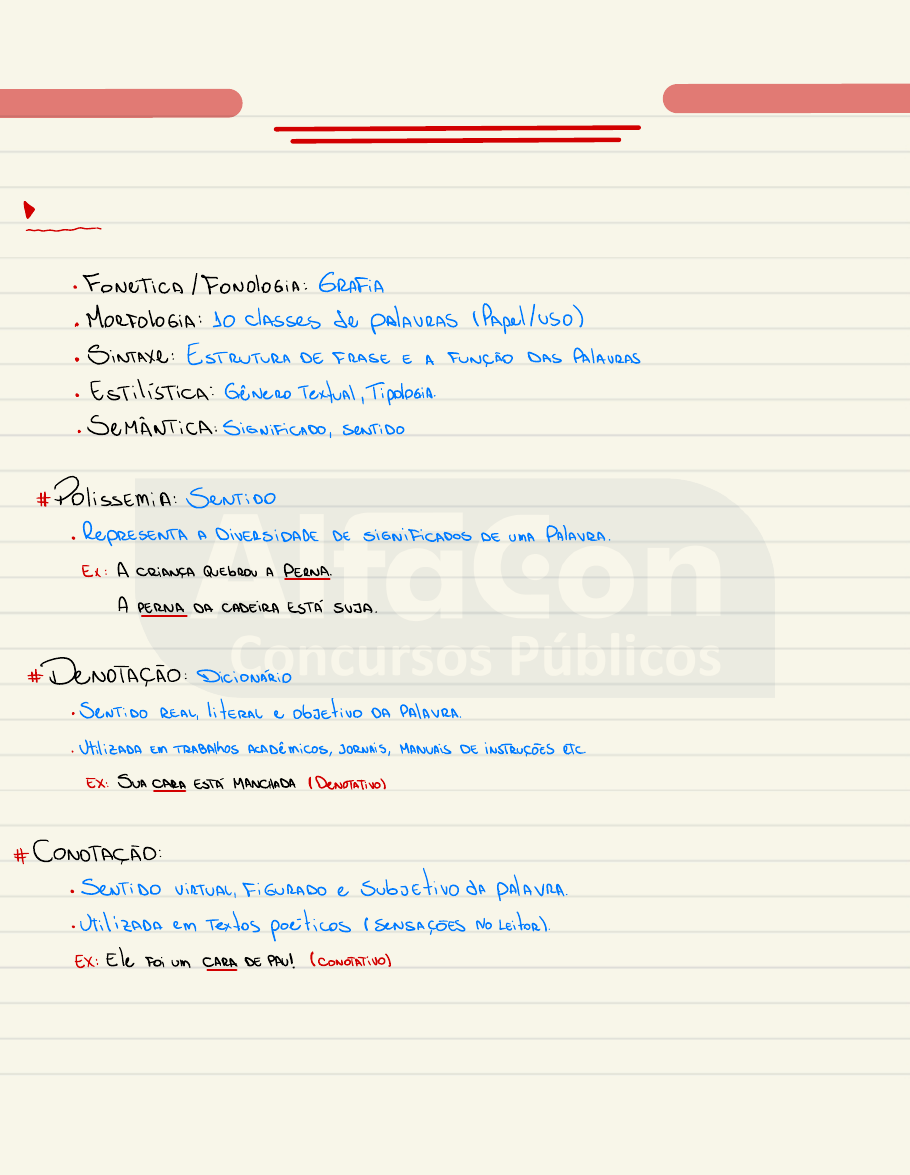 • Fonética / Fonologia: Grafia
• Morfologia: 10 classes de palavras (Papel/uso)
• Sintaxe: Estrutura de frase e a função das palavras
• Estilística: Gênero Textual, Tipologia.
• Semântica: Significado, sentido
# Polissemia: Sentido
• Representa a diversidade de significados de uma palavra.
Ex: A criança quebrou a perna.
A perna da cadeira está suja.
AlfaCon
Concursos Públicos
# Denotação: Dicionário
• Sentido real, literal e objetivo da palavra.
• Utilizada em trabalhos acadêmicos, jornais, manuais de instruções etc
Ex: Sua cara está manchada (Denotativo)
# Conotação:
• Sentido virtual, figurado e subjetivo da palavra.
• Utilizada em textos poéticos (sensações no leitor).
Ex: Ele foi um cara de pau! (conotativo)